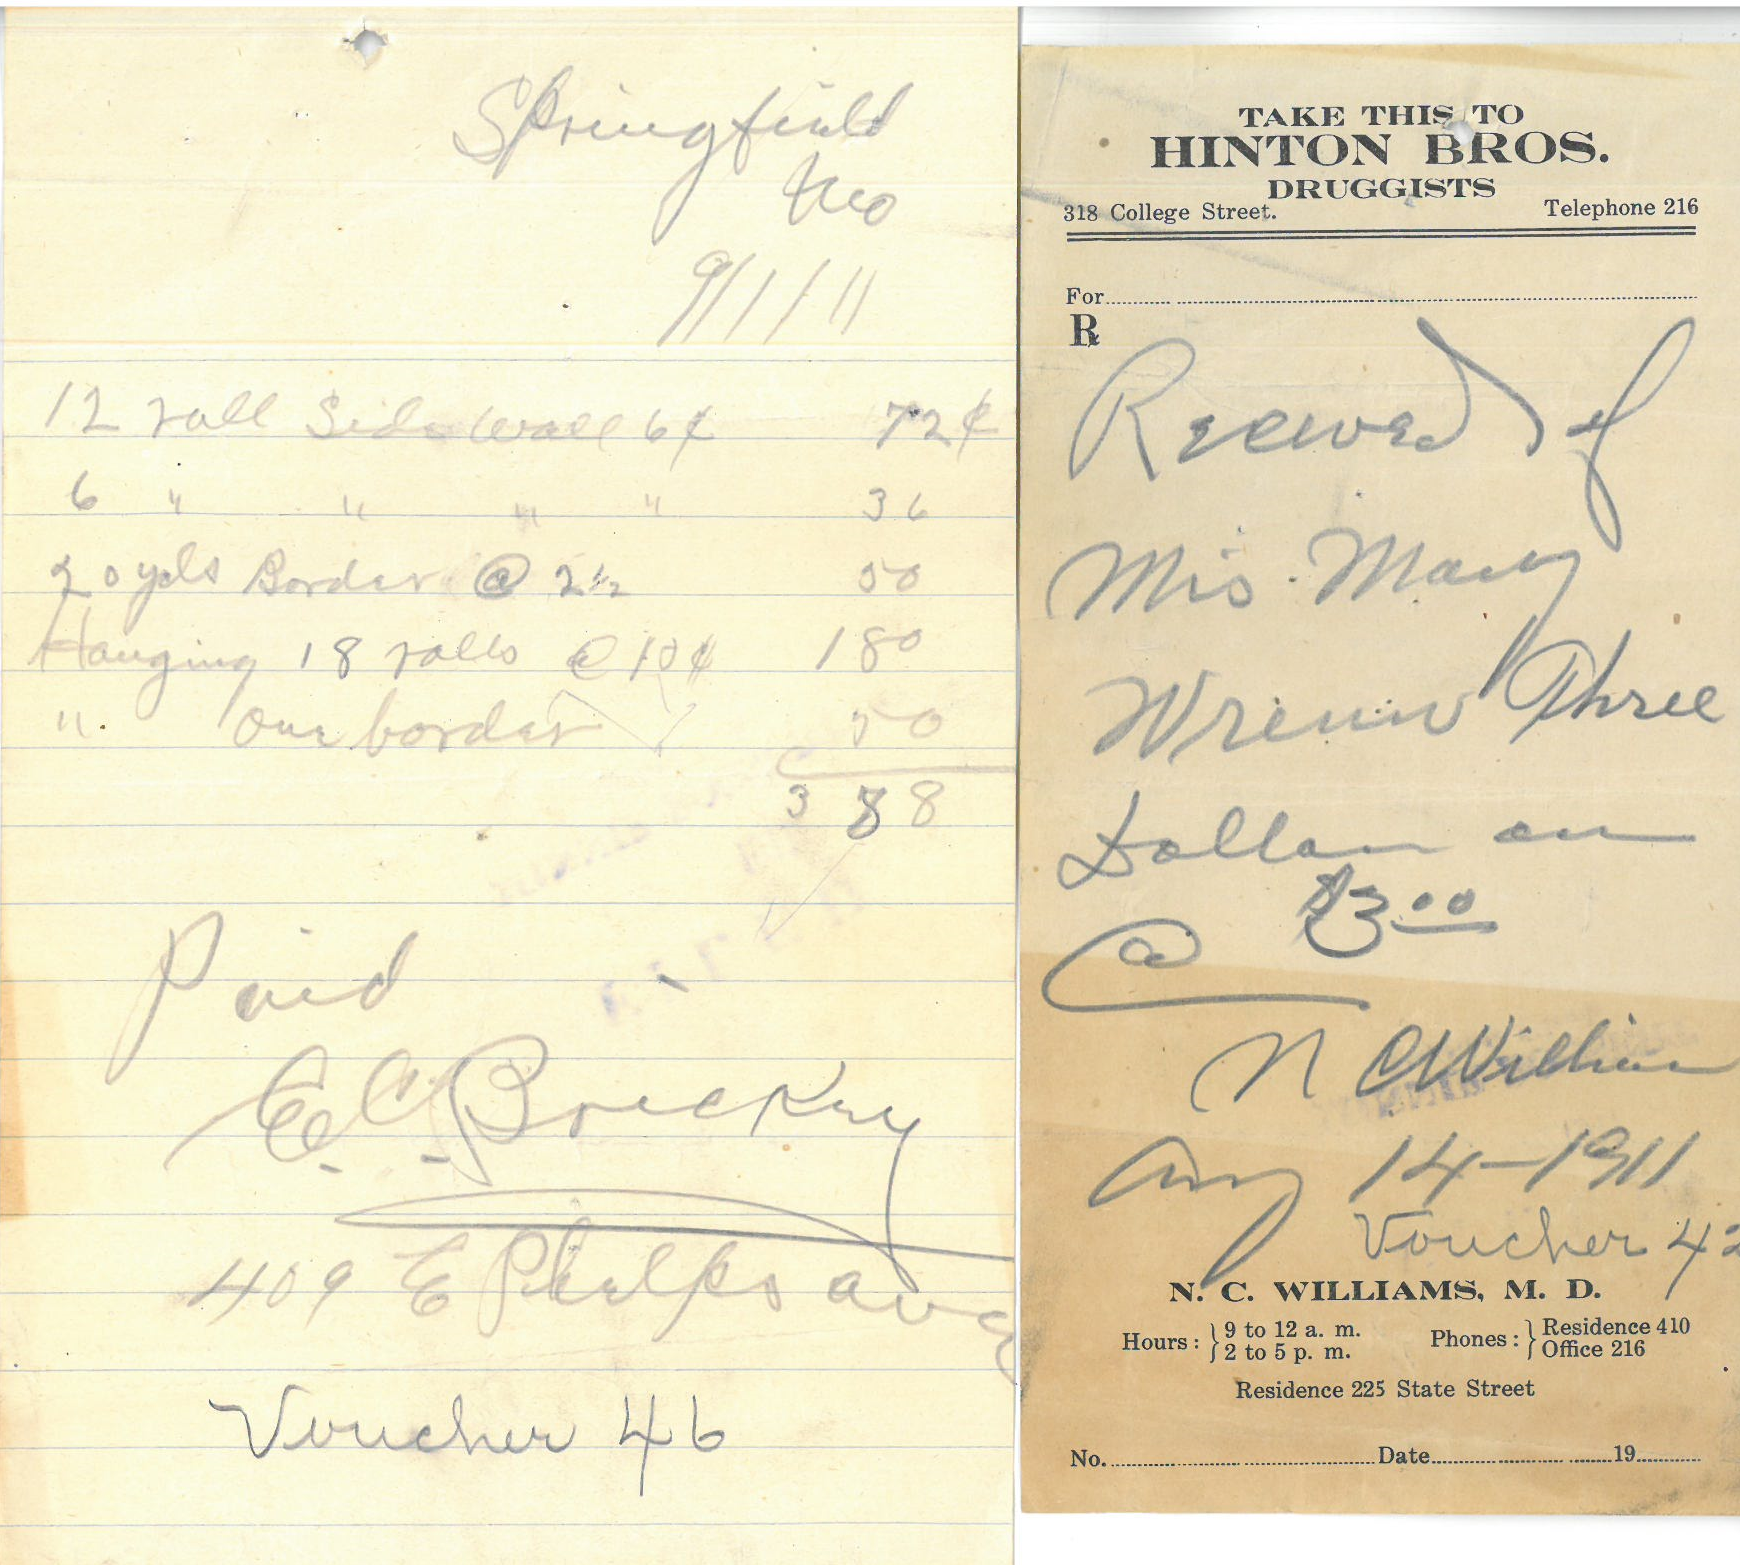 Springfield
Mo
9/1/11
12 roll Side wall 6¢ 72¢
6 " " " " 36
20 yds Border @ 2½ 50
Hanging 18 rolls @ 10¢ 180
" One border 50
3 88
Paid
E. C. Brockey
409 E Phelps ave
Voucher 46
TAKE THIS TO
HINTON BROS.
DRUGGISTS
318 College Street. Telephone 216
For
℞
Received of
Mrs. Mary
Wrenn Three
Dollars on
$3.00
@
N C Williams
Aug 14-1911
Voucher 42
N. C. WILLIAMS, M. D.
Hours: 9 to 12 a. m. 2 to 5 p. m. Phones: Residence 410 Office 216
Residence 225 State Street
No. Date 19